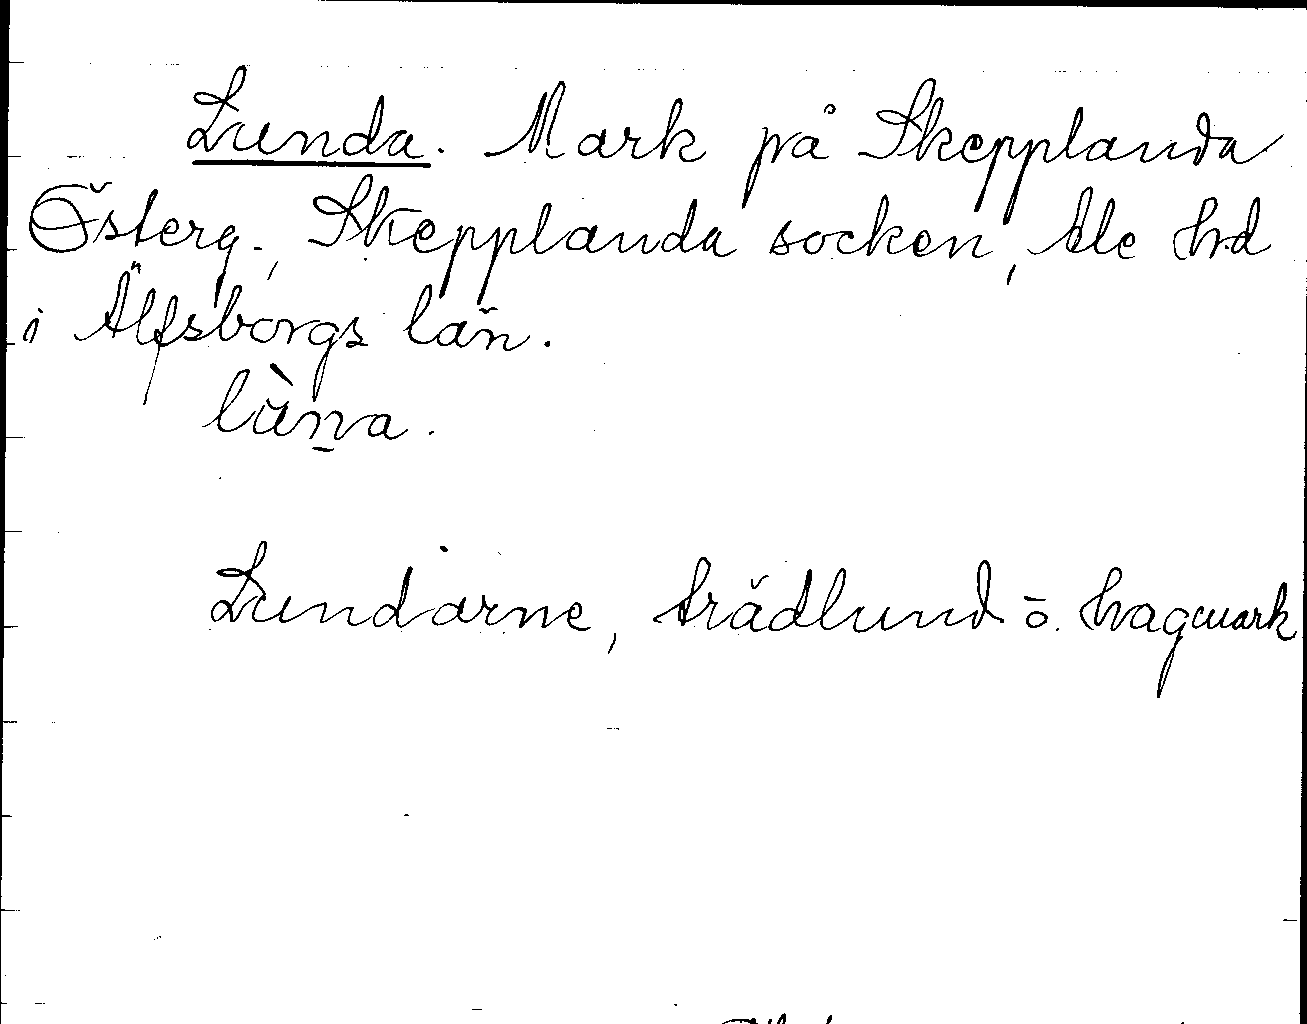 Lunda. Mark på Skepplanda
Österg., Skepplanda socken, Ale hd
i Älfsborgs län.
Lundarne, trädlund o. hagmark